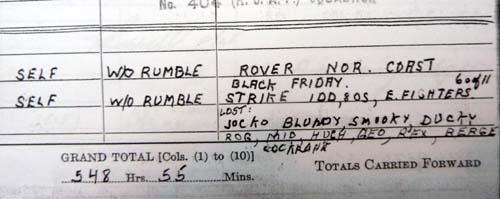 No. 404 (R.C.A.F.) SQUADRON
SELF W/O RUMBLE ROVER NOR. COAST
BLACK FRIDAY. 6 of 11
SELF W/O RUMBLE STRIKE 1DD, E. FIGHTERS
LOST:
JOCKO BLUNDY SMOOKY, DUCKY
ROG, MID, HUGH, GEO, REX, BERGE
COCKRANE
GRAND TOTAL [Cols. (1) to (10)]
548 Hrs. 55 Mins.
TOTALS CARRIED FORWARD